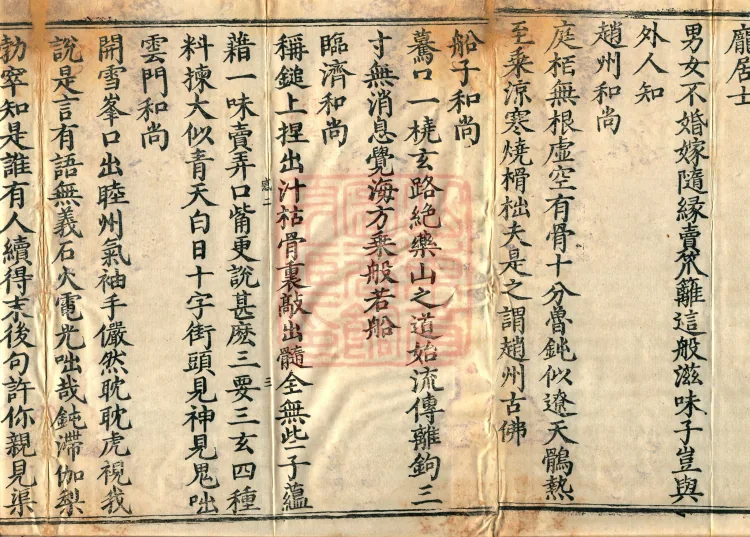 龐居士
男女不婚嫁隨緣賣笊籬這般滋味子豈與
外人知
趙州和尚
庭栢無根虛空有骨十分魯鈍似遼天鶻熱
至乘涼寒燒榾柮夫是之謂趙州古佛
船子和尚
驀口一橈玄路絕藥山之道始流傳離鉤三
寸無消息覺海方乘般若船
臨濟和尚
稱鎚上捏出汁枯骨裏敲出髓全無些子蘊
藉一味賣弄口觜更說甚麽三要三玄四種
料揀大似青天白日十字街頭見神見鬼咄
雲門和尚
開雪峯口出睦州氣袖手儼然眈眈虎視我
說是言有語無義石火電光咄哉鈍滯伽梨
勃窣知是誰有人續得末後句許你親見渠
三